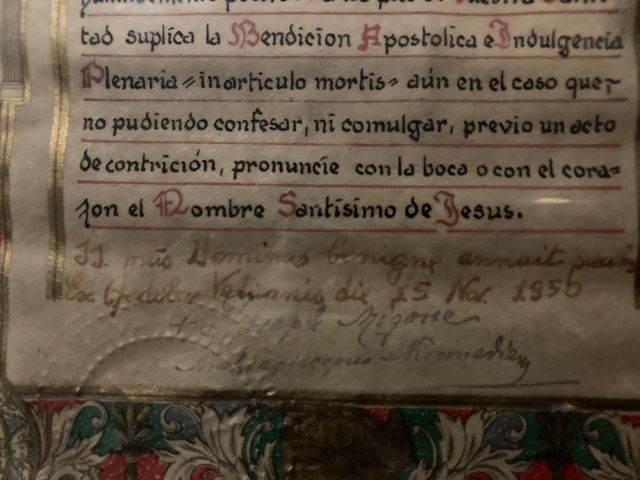 tad suplica la Bendicion Apostolica e Indulgencia
Plenaria «in articulo mortis» aún en el caso que,-
no pudiendo confesar, ni comulgar, previo un acto
de contrición, pronuncie con la boca o con el cora=
zon el Nombre Santísimo de Jesus.
Dominus benigne annuit
Ex Aedibus Vaticanis die 15 Nov. 1950
Joseph Migone
Archiepiscopus Nicomedien